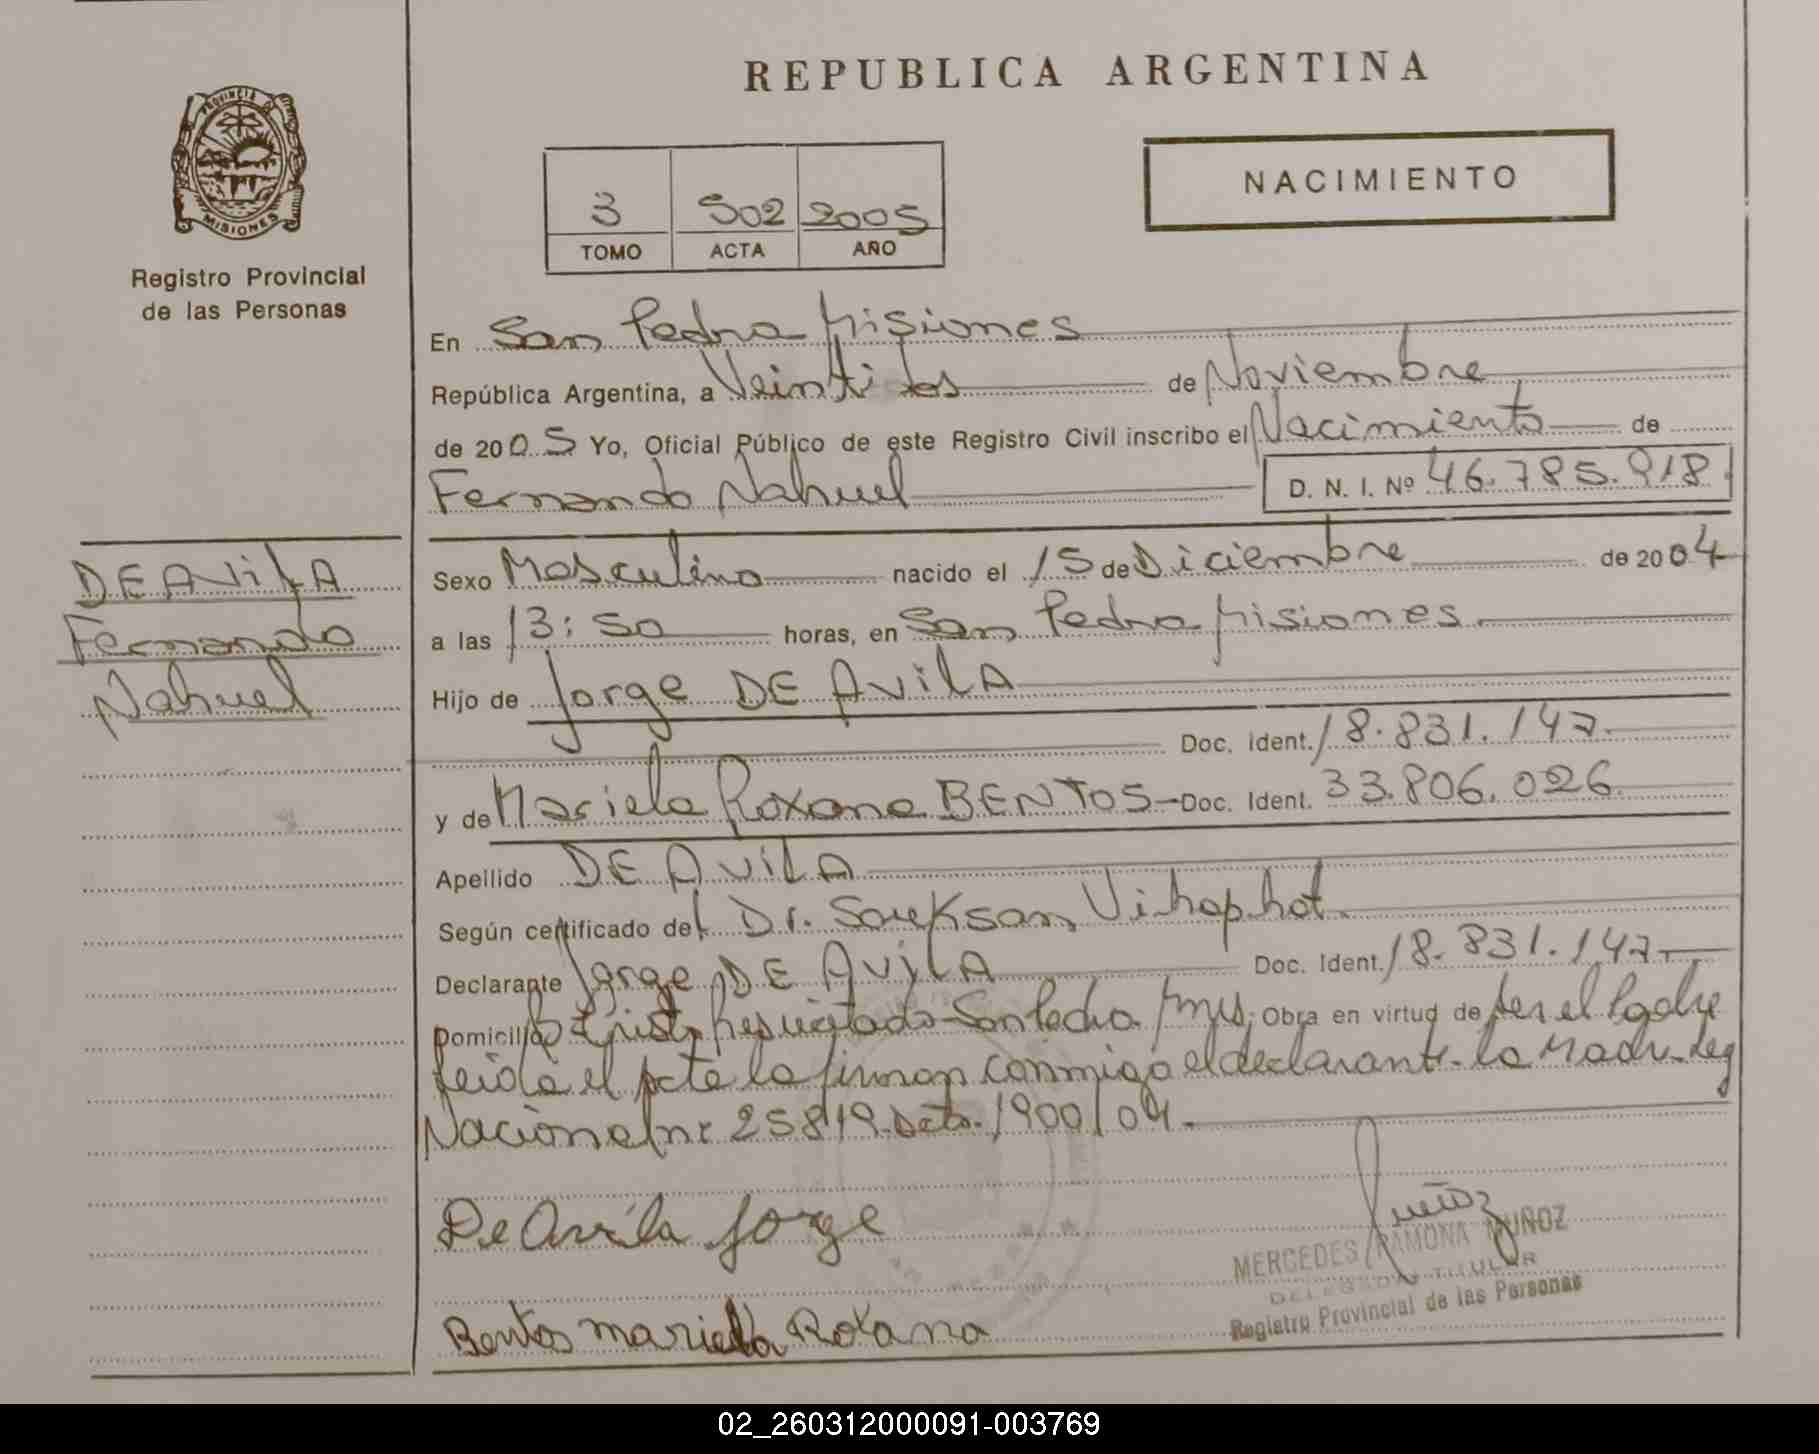 REPUBLICA ARGENTINA
PROVINCIA DE
MISIONES
Registro Provincial
de las Personas
3 502 2005
TOMO ACTA AÑO
NACIMIENTO
En San Pedro Misiones
República Argentina, a Veinti dos de Noviembre
de 2005 Yo, Oficial Público de este Registro Civil inscribo el Nacimiento de
Fernando Nahuel D. N. I. Nº 46.785.918
DE AVilA
Fernando
Nahuel
Sexo Masculino nacido el 15 de Diciembre de 2004
a las 13:50 horas, en San Pedro Misiones
Hijo de Jorge DE AVilA
Doc. Ident. 18.831.147
y de Mariela Roxana BENTOS Doc. Ident. 33.806.026
Apellido DE AVilA
Según certificado del Dr. Saeksan Vihophot
Declarante Jorge DE AVilA Doc. Ident. 18.831.147
Domicilio Bº Cristo Resucitado San Pedro Mnes, Obra en virtud de ser el Padre
leida el acta la firman conmigo el declarante la Madre Ley
Nacional nº 25819 Dcto. 1900/04.
De Avila Jorge
Muñoz
MERCEDES RAMONA MUÑOZ
DELEGADA TITULAR
Registro Provincial de las Personas
Bentos Mariela Roxana
02_260312000091-003769